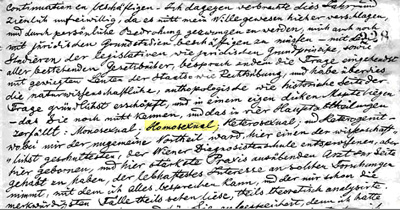 zu beschäftigen. Ich dagegen verbrachte dies Jahr hier
ziemlich unfreiwillig, da es nicht mein Wille gewesen hieher verschlagen,
und durch persönliche Bedrohung gezwungen zu werden, mich auch noch
mit juridischen Grundstudien beschäftigen zu müssen. 228
Studieren der legislativen wie juridischen Grundprinzipe, sowie
aller bestehenden Gesetzbücher, besprach auch die Frage eingehendst
mit gewiegten Leuten der Staats wie Rechtsübung, und habe überdies
die naturwissenschaftliche, anthropologische wie historische Seite der
Frage gründlichst erschöpft, und in einem eigen dicken liegen
– das Sie noch nicht kennen, und das in vier Hauptabtheilungen
zerfällt: Monosexual; Homosexual; Heterosexual; und Heterogenit –
wobei mir der ungemeine Vortheil ward, hier einen der wissenschaft-
lichst geschultesten, der Diagnostenschule entsprossenen, aber
hier gebornen, und hier stärkste Praxis ausübenden Arzt zur Seite
gehabt zu haben, der lebhaftestes Interesse an solchen Forschungen
nimmt, mit dem ich alles besprechen kann, und der mir schon die
merkwürdigsten Fälle theils sehen liess, theils theoretisch analysirte